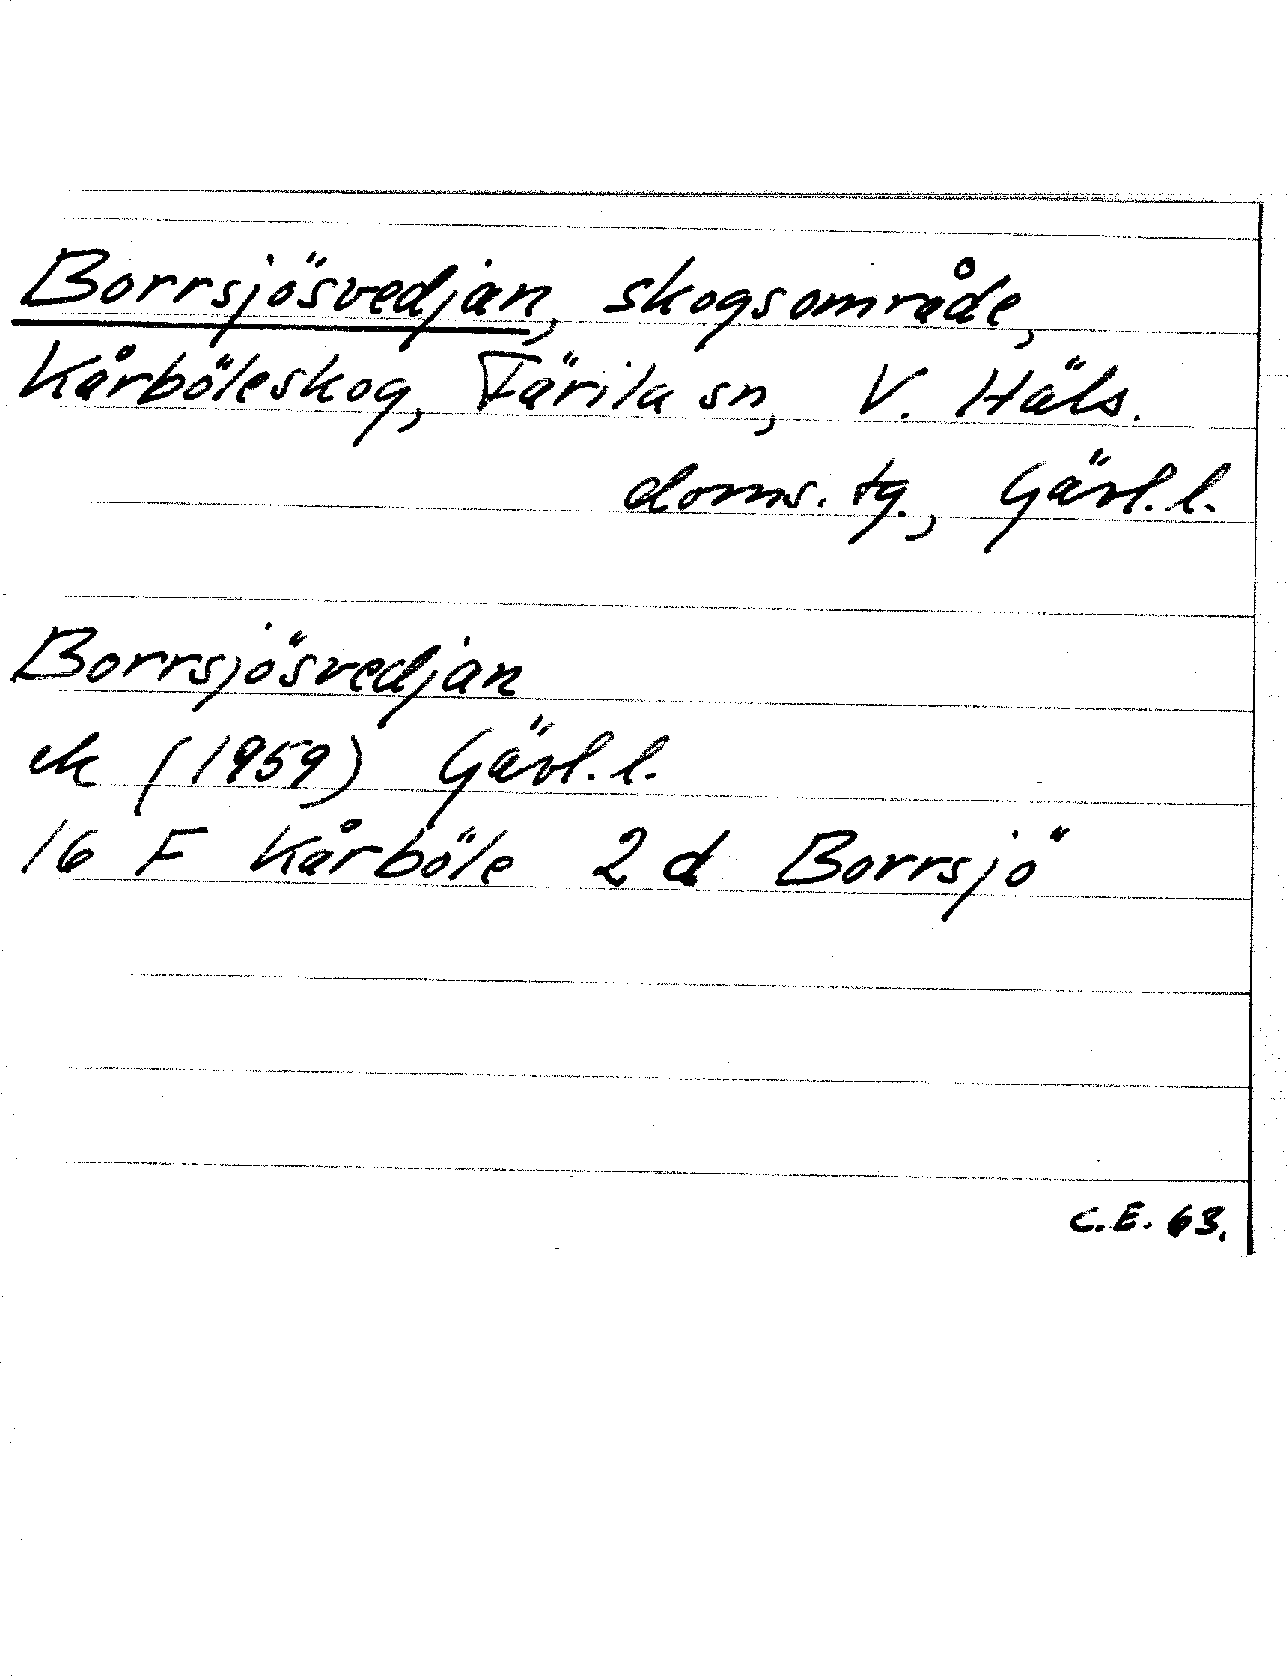 Borrsjösvedjan, skogsområde,
Kårböleskog, Färila sn, V. Häls.
doms. tg., Gävl. l.
Borrsjösvedjan
ek (1959) Gävl. l.
16 F Kårböle 2 d Borrsjö
C.E. 63.